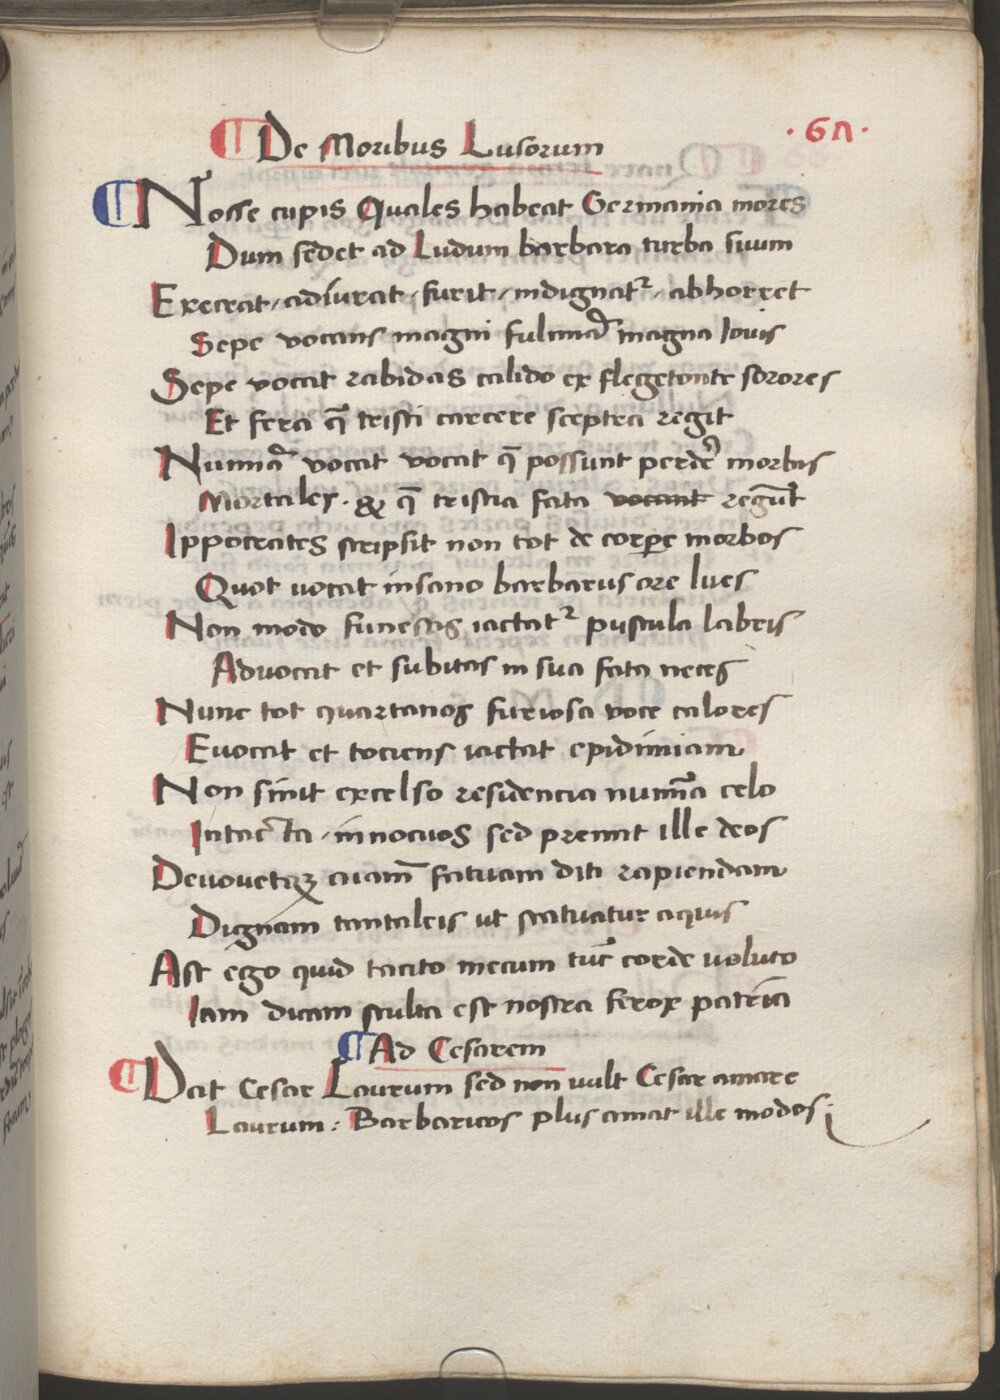 ¶ De Moribus Lusorum
·67·
¶ Nosse cupis Quales habeat Germania mores
Dum sedet ad Ludum barbara turba suum
Execrat, adiurat, furit, indignatᷣ, abhorret
Sepe vocans magni fulminaꝗ magna Iovis
Sepe vocat rabidas calido ex flegetonte sorores
Et fera q̄ tristi carcere sceptra regit
Numīa vocat vocat q̄ possunt perdere morbis
Mortales · & q̄ tristia fata vocant regūt
Ippocrates scripsit non tot de corꝑe morbos
Quot vocat insano barbarus ore lues
Non modo funestis iactatᷣ pustula labris
Advocat et subitas in sua fata neces
Nunc tot quartanos furiosa voce calores
Evocat et tociens iactat epidimiam
Non sinit excelso residencia numīa celo
Intacta, innocuos sed premit ille deos
Devovetqꝫ aīam fatuam diti rapiendam
Dignam tantaleis ut statuatur aquis
Ast ego quid tacito mecum tūc corde voluto
Iam dicam stulta est nostra ferox patria
¶ Ad Cesarem
¶ Dat Cesar Laurum sed non vult Cesar amare
Laurum: Barbaricos plus amat ille modos;